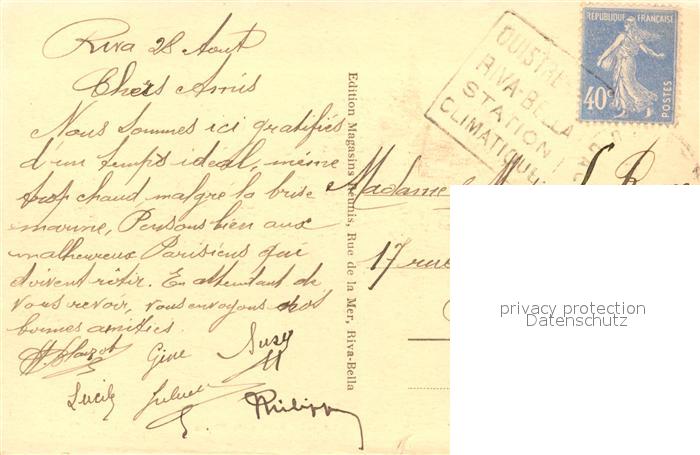 Riva 28 Aout
Chers Amis
Nous sommes ici gratifiés
d'un temps idéal, même
trop chaud malgré la brise
marine, Pensons bien aux
malheureux Parisiens qui
doivent rôtir. En attendant de
vous revoir, vous envoyons nos
bonnes amitiés.
Gine Suzy
Lucile
Philippe
Edition Magasins Réunis, Rue de la Mer, Riva-Bella
OUISTRE
RIVA-BELLA
STATION
CLIMATIQUE
REPUBLIQUE FRANÇAISE
40c
POSTES
Madame
17 rue
privacy protection
Datenschutz